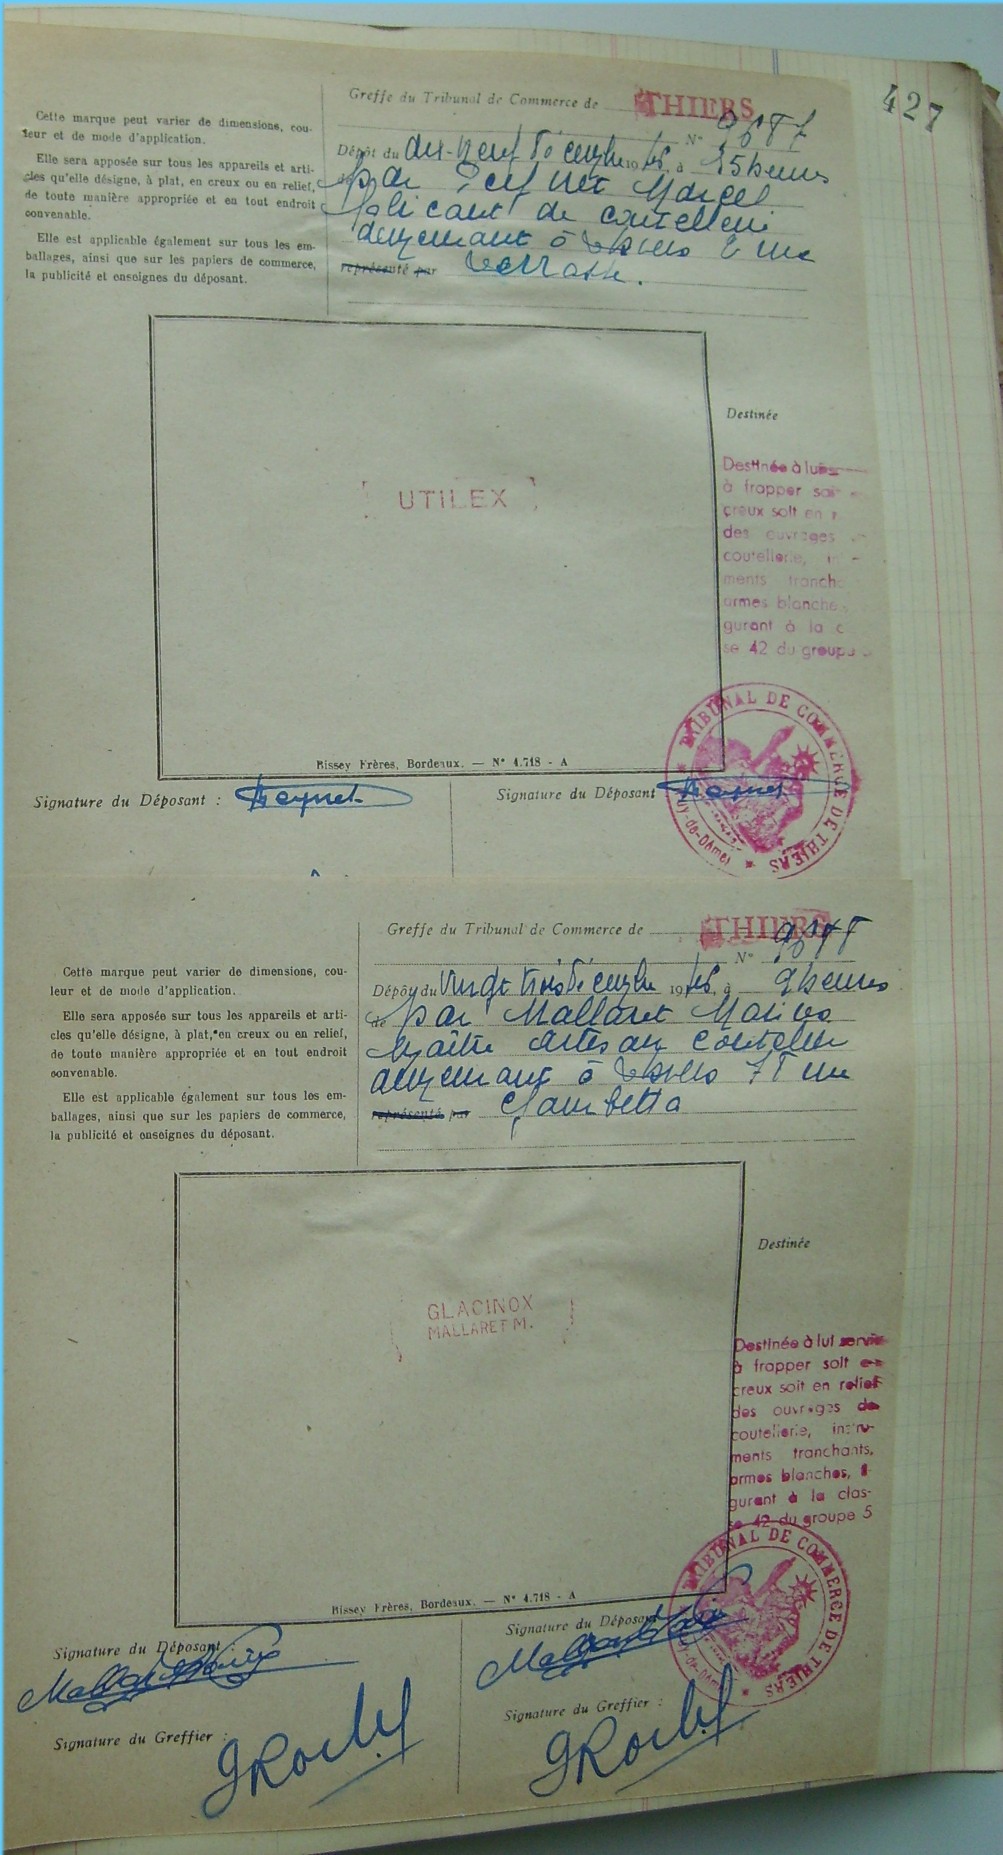 427
Greffe du Tribunal de Commerce de THIERS
Cette marque peut varier de dimensions, cou-
leur et de mode d'application.
Elle sera apposée sur tous les appareils et arti-
cles qu'elle désigne, à plat, en creux ou en relief,
de toute manière appropriée et en tout endroit
convenable.
Elle est applicable également sur tous les em-
ballages, ainsi que sur les papiers de commerce,
la publicité et enseignes du déposant.
N°
Dépôt du dix-neuf Décembre 19 à 15 heures
par Marcel
fabricant de coutellerie
demeurant à Thiers 2 rue
représenté par Terrasse.
UTILEX
Destinée
Destinée à lui
à frapper soi
creux soit en r
des ouvrages
coutellerie, in
ments tranch
armes blanches
gurant à la c
se 42 du groupe
Rissey Frères, Bordeaux. — N° 4.718 - A
Signature du Déposant :
Signature du Déposant
TRIBUNAL DE COMMERCE DE THIERS
(Puy-de-Dôme)
Greffe du Tribunal de Commerce de THIERS
Cette marque peut varier de dimensions, cou-
leur et de mode d'application.
Elle sera apposée sur tous les appareils et arti-
cles qu'elle désigne, à plat, en creux ou en relief,
de toute manière appropriée et en tout endroit
convenable.
Elle est applicable également sur tous les em-
ballages, ainsi que sur les papiers de commerce,
la publicité et enseignes du déposant.
N°
Dépôt du Vingt trois Décembre 19 à 9 heures
de par Mallaret Marius
Maître artisan coutelier
demeurant à Thiers 78 rue
représenté par Gambetta
GLACINOX
MALLARET M.
Destinée
Destinée à lui servir
à frapper soit en
creux soit en relief
des ouvrages de
coutellerie, instru-
ments tranchants,
armes blanches, fi-
gurant à la clas-
se 42 du groupe 5
Rissey Frères, Bordeaux. — N° 4.718 - A
Signature du Déposant :
Signature du Déposant
TRIBUNAL DE COMMERCE DE THIERS
(Puy-de-Dôme)
Signature du Greffier :
Signature du Greffier :